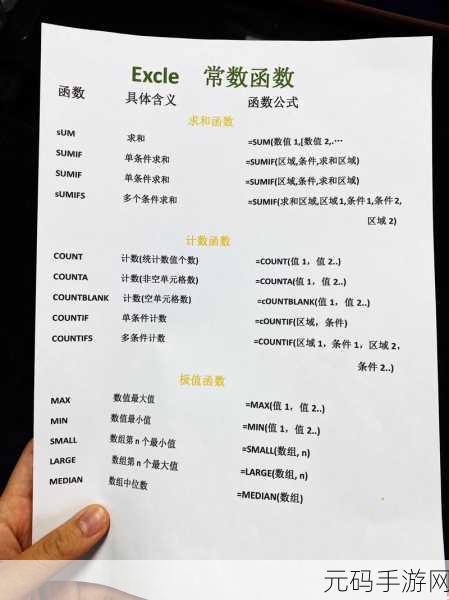 Excle 常数函数
函数 具体含义 函数公式
求和函数
sUM 求和 =SUM(数值 1,[数值 2,.…
SUMIF 单条件求和 =SUMIF(区域,条件,求和区域)
SUMIF 单条件求和 =SUMIF(区域,条件,求和区域)
sUMIFS 多个条件求和 =SUMIF(求和区域,区域1,条件1,条件2,
区域 2)
计数函数
COUNT 计数(统计数值个数) =COUNT(值 1，值 2..)
COUNTA 计数(非空单元格数) =COUNTA(值 1，值 2..)
COUNTBLANK 计数(空单元格数) =cOUNTBLANK(值 1，值 2..)
COUNTIF 单条件计数 =cOUNTIF(区域，条件)
COUNTIFS 多条件计数 =COUNTIF(区域 1，条件 1，区域 2，
条件 2..)
极值函数
MAX 数值最大值 =MAX(值 1，值 2..)
MIN 数值最小值 =MIN(值 1，值 2..)
SMALL 数组第 n 个最小值 =SMALL(数组, n)
LARGE 数组第 n 个最大值 =LARGE(数组, n)
MEDIAN 数组中位数 =MEDIAN(数组)
元码手游网